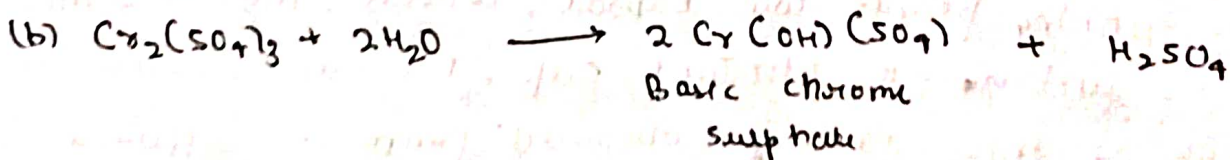 (b) Cr₂(SO₄)₃ + 2H₂O ⟶ 2 Cr(OH)(SO₄) + H₂SO₄
Basic chrome
sulphate